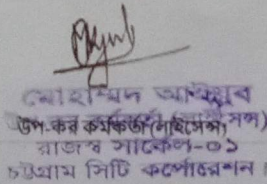 মোহাম্মদ আইয়ুব
উপ-কর কর্মকর্তা (লাইসেন্স)
রাজস্ব সার্কেল-০১
চট্টগ্রাম সিটি কর্পোরেশন।